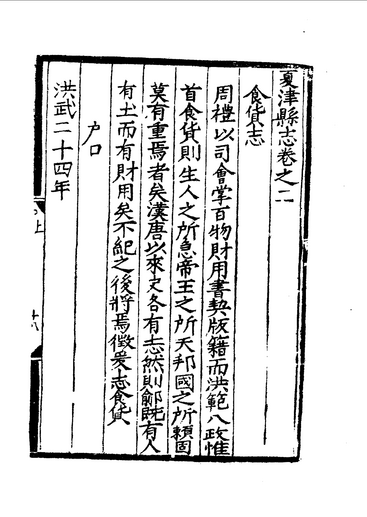 夏津縣志卷之二
食貨志
周禮以司會掌百物財用書契版籍而洪範八政惟
首食貨則生人之所急帝王之所天邦國之所賴固
莫有重焉者矣漢唐以來史各有志然則鄃旣有人
有土而有財用矣不紀之後將焉徵爰志食貨
戶口
洪武二十四年
上
十八